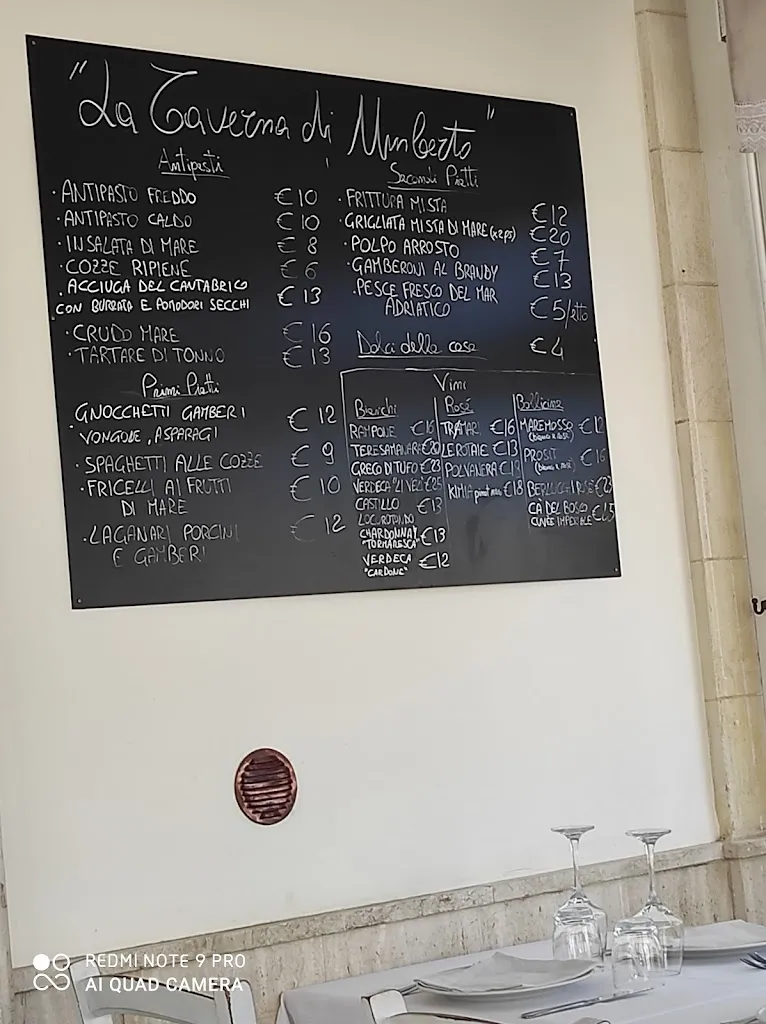 "La Taverna di Umberto"
Antipasti
· ANTIPASTO FREDDO €10
· ANTIPASTO CALDO €10
· INSALATA DI MARE €8
· COZZE RIPIENE €6
· ACCIUGA DEL CANTABRICO
CON BURRATA E POMODORI SECCHI €13
· CRUDO MARE €16
· TARTARE DI TONNO €13
Primi Piatti
· GNOCCHETTI GAMBERI
VONGOLE, ASPARAGI €12
· SPAGHETTI ALLE COZZE €9
· FRICELLI AI FRUTTI
DI MARE €10
· LAGANARI PORCINI
E GAMBERI €12
Secondi Piatti
· FRITTURA MISTA €12
· GRIGLIATA MISTA DI MARE (x2PS) €20
· POLPO ARROSTO €7
· GAMBERONI AL BRANDY €13
· PESCE FRESCO DEL MAR
ADRIATICO €5/etto
Dolci della casa €4
Vini
Bianchi
RAMPONE €16
TERESAMANARA €20
GRECO DI TUFO €23
VERDECA
CASTILLO €13
LOCOROTONDO
CHARDONNAY €13
"TORMARESCA"
VERDECA €12
"CARDONE"
Rosé
TRAMARI €16
LE ROTAIE €13
POLVANERA
KIMIA €18
Bollicine
MAREMOSSO €12
(bianco e rosé)
PROSIT €16
(bianco e rosé)
CÀ DEL BOSCO
CUVÉE IMPERIALE
REDMI NOTE 9 PRO
AI QUAD CAMERA